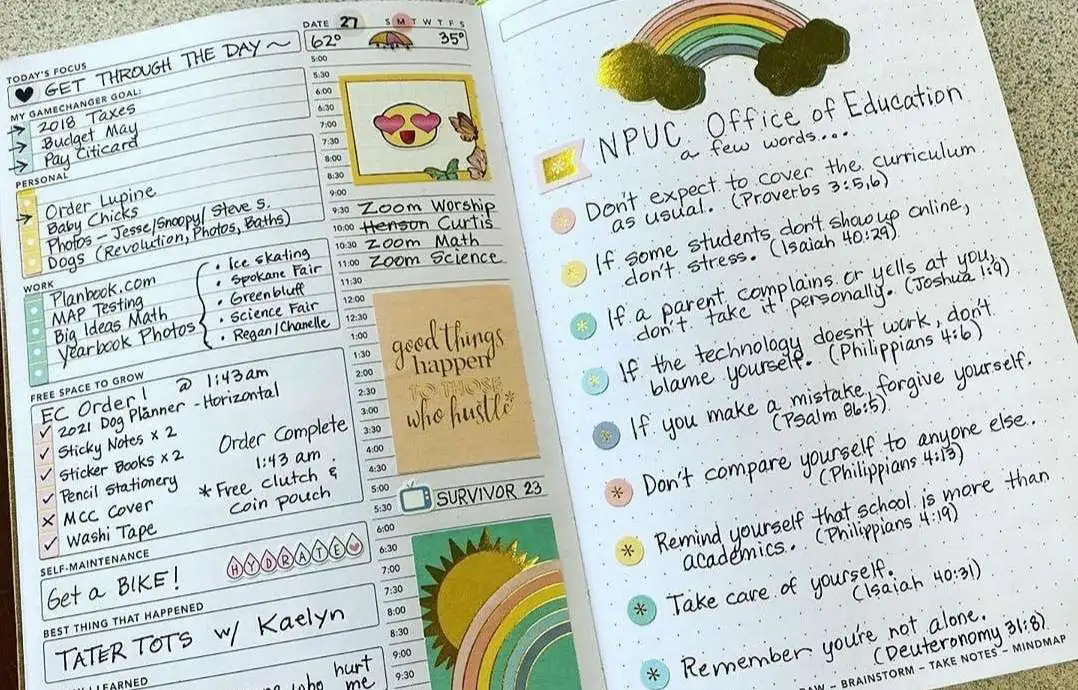 DATE 27 S M T W T F S
62° 35°
TODAY'S FOCUS
GET THROUGH THE DAY ~
MY GAMECHANGER GOAL:
2018 Taxes
Budget May
Pay Citicard
PERSONAL
Order Lupine
Baby Chicks
Photos - Jesse/Snoopy/Steve S.
Dogs (Revolution, Photos, Baths)
WORK
Planbook.com
MAP Testing
Big Ideas Math
Yearbook Photos
• Ice Skating
• Spokane Fair
• Greenbluff
• Science Fair
• Regan/Chanelle
FREE SPACE TO GROW
EC Order! @ 1:43am
✓ 2021 Dog Planner - Horizontal
✓ Sticky Notes x 2
✓ Sticker Books x 2
✓ Pencil Stationery
x MCC Cover
✓ Washi Tape
Order Complete
1:43 am
* Free clutch &
coin pouch
SELF-MAINTENANCE
HYDRATE
Get a BIKE!
BEST THING THAT HAPPENED
TATER TOTS w/ Kaelyn
LEARNED
who hurt
me
5:00
5:30
6:00
6:30
7:00
7:30
8:00
8:30
9:00
9:30 Zoom Worship
10:00 Henson Curtis
10:30 Zoom Math
11:00 Zoom Science
11:30
12:00
12:30
1:00
1:30
2:00
2:30
3:00
3:30
4:00
4:30
good things
happen
TO THOSE
who hustle*
5:00
5:30 SURVIVOR 23
6:00
6:30
7:00
7:30
8:00
8:30
9:00
9:30
NPUC Office of Education
a few words...
Don't expect to cover the curriculum
as usual. (Proverbs 3:5,6)
If some students don't show up online,
don't stress. (Isaiah 40:29)
If a parent complains or yells at you,
don't take it personally. (Joshua 1:9)
If the technology doesn't work, don't
blame yourself. (Philippians 4:6)
If you make a mistake, forgive yourself.
(Psalm 86:5)
Don't compare yourself to anyone else..
(Philippians 4:13)
Remind yourself that school is more than
academics. (Philippians 4:19)
Take care of yourself.
(Isaiah 40:31)
Remember you're not alone.
(Deuteronomy 31:8)
- BRAINSTORM - TAKE NOTES - MINDMAP